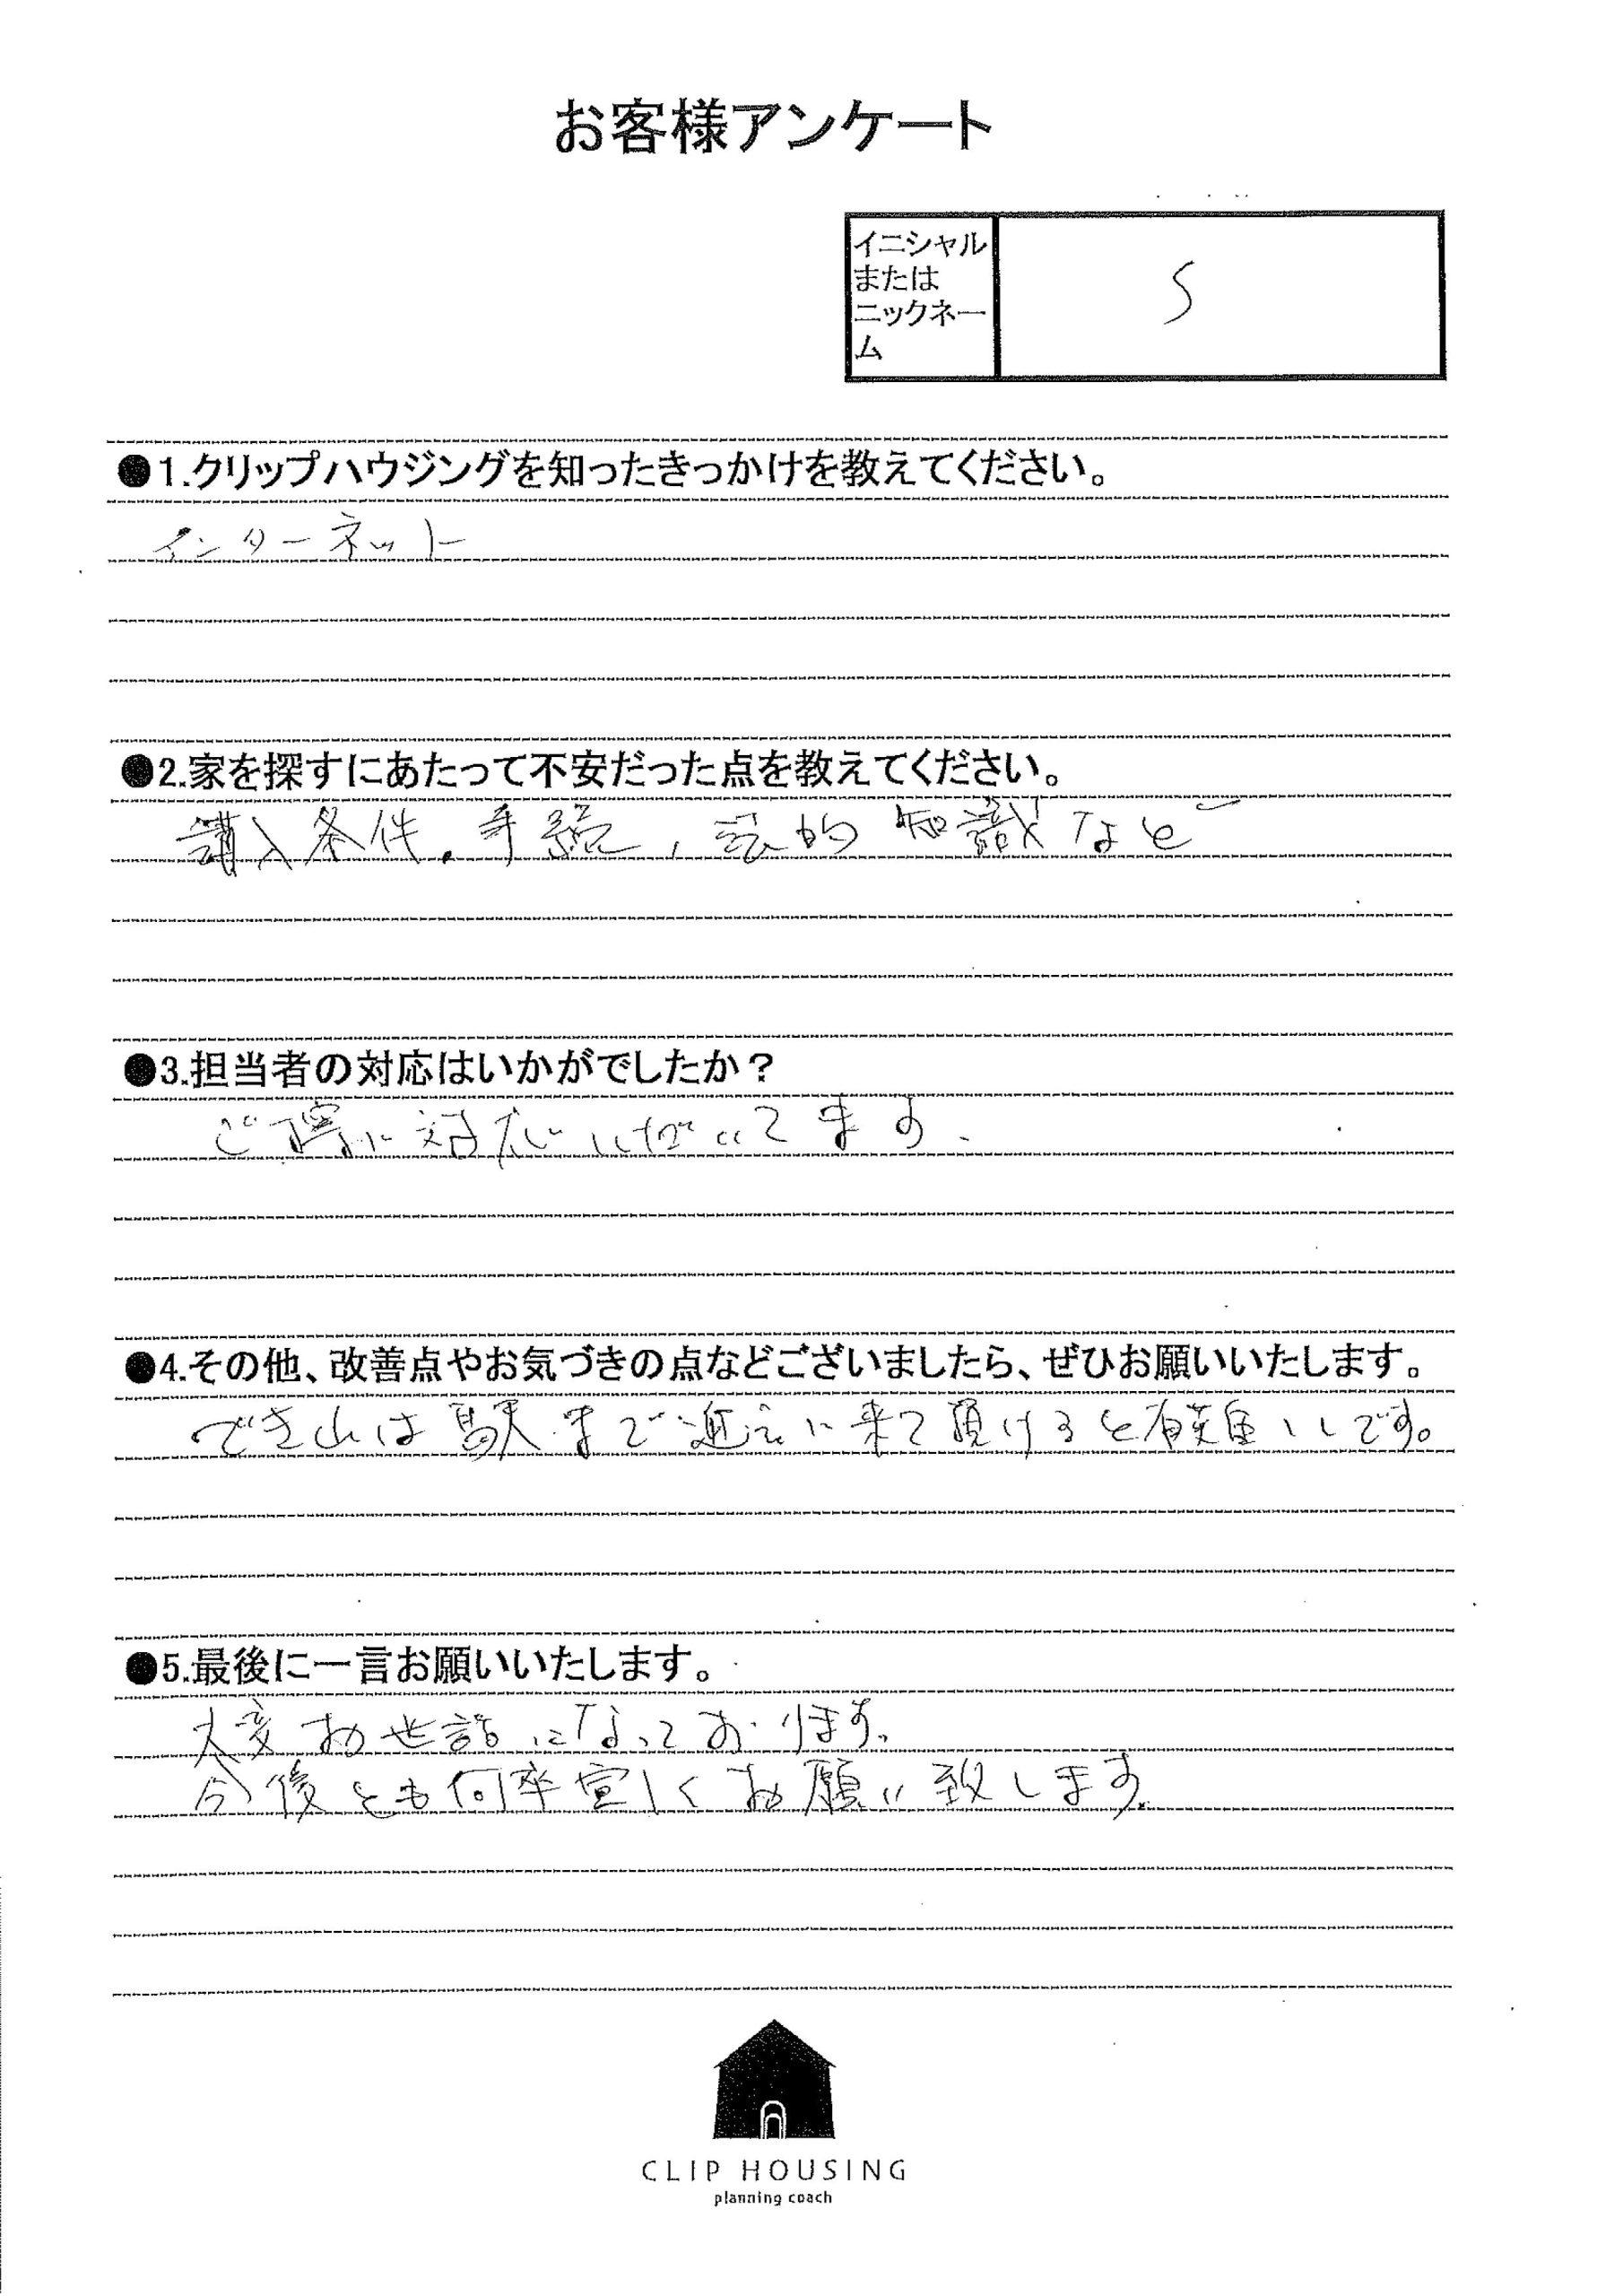 お客様アンケート
イニシャル
または
ニックネー
ム
S
●1.クリップハウジングを知ったきっかけを教えてください。
インターネット
●2.家を探すにあたって不安だった点を教えてください。
購入条件.手続,法的知識など
●3.担当者の対応はいかがでしたか?
に対応いただいてます.
●4.その他、改善点やお気づきの点などございましたら、ぜひお願いいたします。
できれば駅まで迎えに来て頂けると有難いです。
●5.最後に一言お願いいたします。
大変お世話になっております。
今後とも何卒宜しくお願い致します。
CLIP HOUSING
planning coach